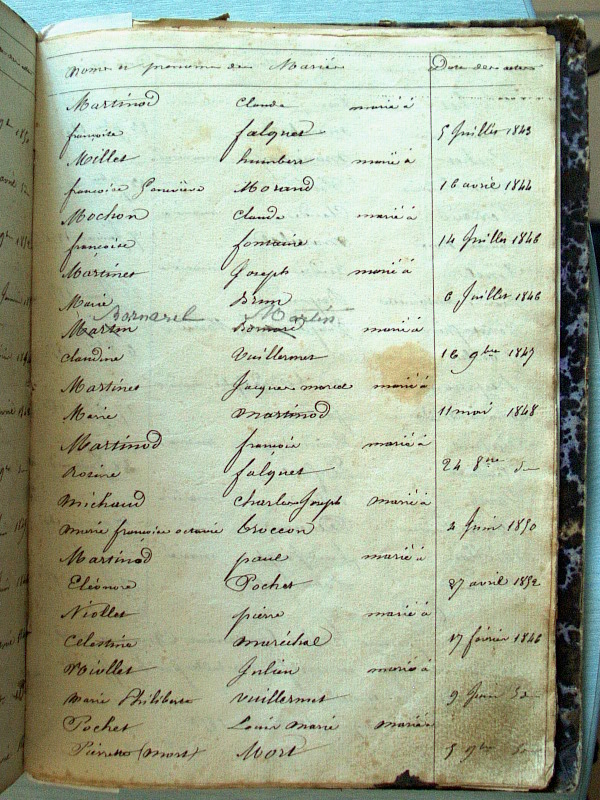 Noms et prenoms des Mariés Date des actes
Martinod Claude marié à
françoise falquet 5 Juillet 1843
Millet humbert marié à
françoise Geneviève Morand 16 avril 1844
Mochon Claude marié à
françoise fontaine 14 Juillet 1846
Martinet Joseph marié à
Marie Brun 6 Juillet 1846
Bornard Martin
Martin marié à
claudine Vuillermet 16 9bre 1847
Martinet Jacques marcel marié à
Marie Martinod 11 mai 1848
Martinod françois marié à
Rosine falquet 24 8bre do
Michaud Charles Joseph marié à
marie françoise octavie 4 Juin 1850
Martinod paul marié à
Eléonore Pochet 27 avril 1852
Niollet pierre marié à
Celestine maréchal 17 février 1846
Niollet Julien marié à
Marie Philiberte Vuillermet 9 Juin do
Pochet Louis Marie marié à
Pierrette (Mort) Mort 5 9bre do